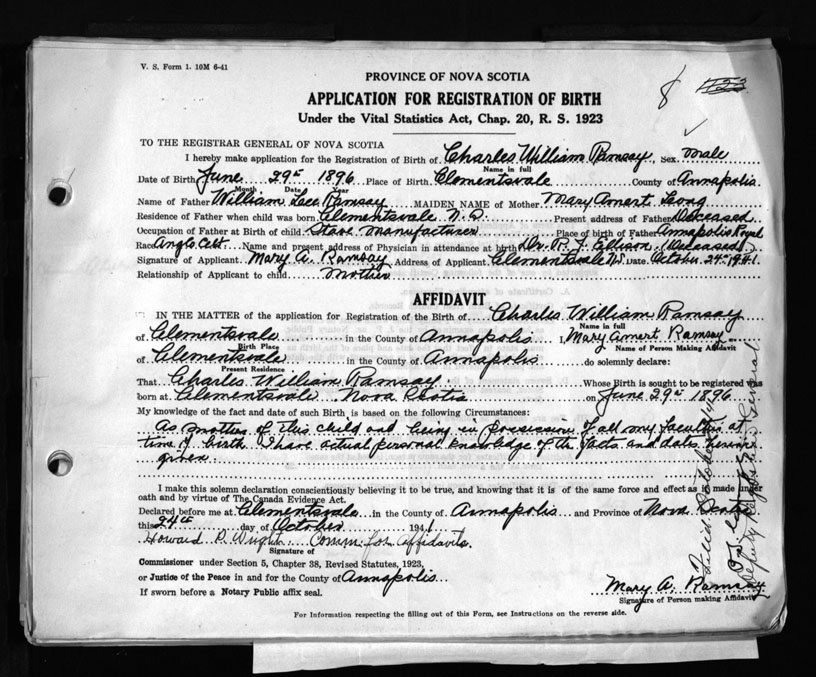 V. S. Form 1. 10M 6-41
8 
PROVINCE OF NOVA SCOTIA
APPLICATION FOR REGISTRATION OF BIRTH
Under the Vital Statistics Act, Chap. 20, R. S. 1923
TO THE REGISTRAR GENERAL OF NOVA SCOTIA
I hereby make application for the Registration of Birth of Charles William Ramsay, Sex male
Name in full
Date of Birth June 29th 1896 Place of Birth Clementsvale County of Annapolis
Month Date Year
Name of Father William Ramsay MAIDEN NAME of Mother Mary Long
Residence of Father when child was born Clementsvale N.S. Present address of Father Deceased
Occupation of Father at Birth of child Stave manufacturer Place of birth of Father Annapolis Royal
Race Anglo Celt Name and present address of Physician in attendance at birth Dr. R. J. Ellison (Deceased)
Signature of Applicant Mary A. Ramsay Address of Applicant Clementsvale N.S. Date October 24th 1941
Relationship of Applicant to child mother
AFFIDAVIT
IN THE MATTER of the application for Registration of the Birth of Charles William Ramsay
Name in full
of Clementsvale in the County of Annapolis Mary Ramsay
Birth Place Name of Person Making Affidavit
of Clementsvale in the County of Annapolis do solemnly declare:
Present Residence
That Charles William Ramsay Whose Birth is sought to be registered was
born at Clementsvale Nova Scotia on June 29th 1896
My knowledge of the fact and date of such Birth is based on the following Circumstances:
As mother of this child and being in possession of all my faculties at
time of birth I have actual personal knowledge of the facts and dates herein
given
I make this solemn declaration conscientiously believing it to be true, and knowing that it is of the same force and effect as if made under
oath and by virtue of The Canada Evidence Act.
Declared before me at Clementsvale in the County of Annapolis and Province of Nova Scotia
this 24th day of October 1941
Howard D. Wright Comm. for Affidavits.
Signature of
Commissioner under Section 5, Chapter 38, Revised Statutes, 1923,
or Justice of the Peace in and for the County of Annapolis
If sworn before a Notary Public affix seal.
Mary A. Ramsay
Signature of Person making Affidavit
Filed October
Deputy Registrar General
For Information respecting the filling out of this Form, see Instructions on the reverse side.